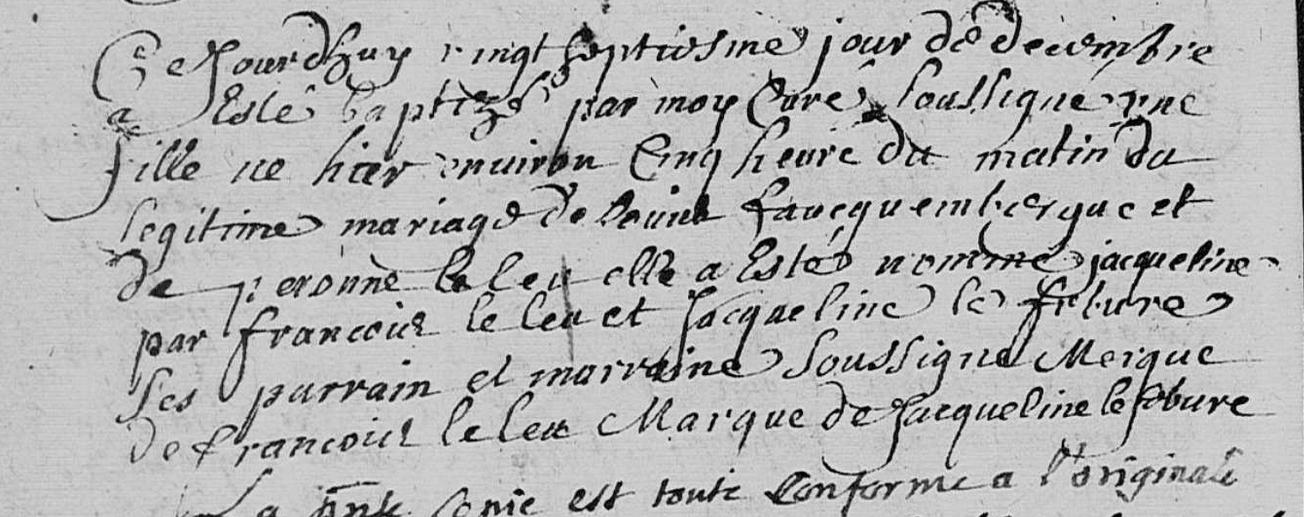 Ce Jourdhuy vingt septiesme jour de decembre
a Esté baptizé par moy Curé soussigné une
fille ne hier environ Cinq heure du matin du
legitime mariage de Louis faucquembergue et
de peronne le leu elle a Esté nommé jacqueline
par francois le leu et Jacqueline le febure
Ses parrain et marraine Soussigne Merque
de francois le leu Marque de Jacqueline lefebure
La pnte Copie est toute Conforme a l'originale